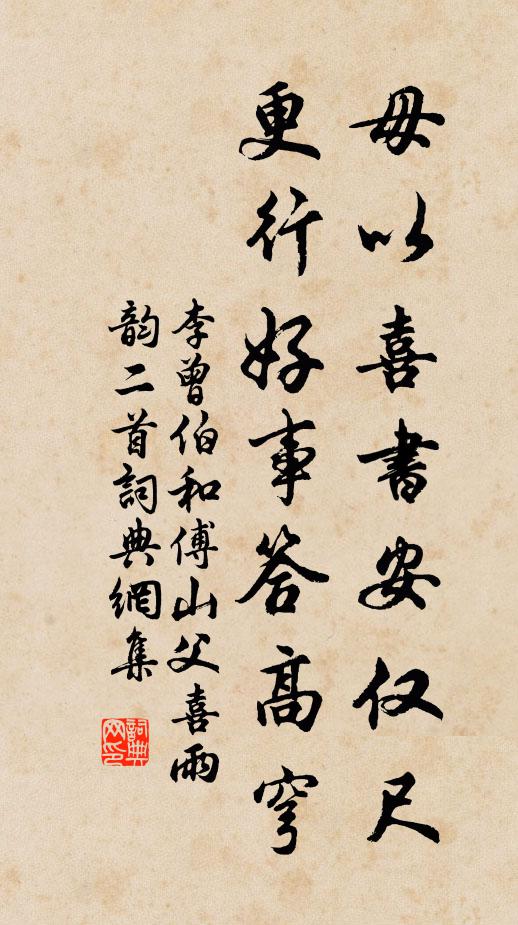 毋以喜書安仅尺
更行好事答高穹
李曾伯和傅山父喜雨
韵二首詞典網集
詞典网印